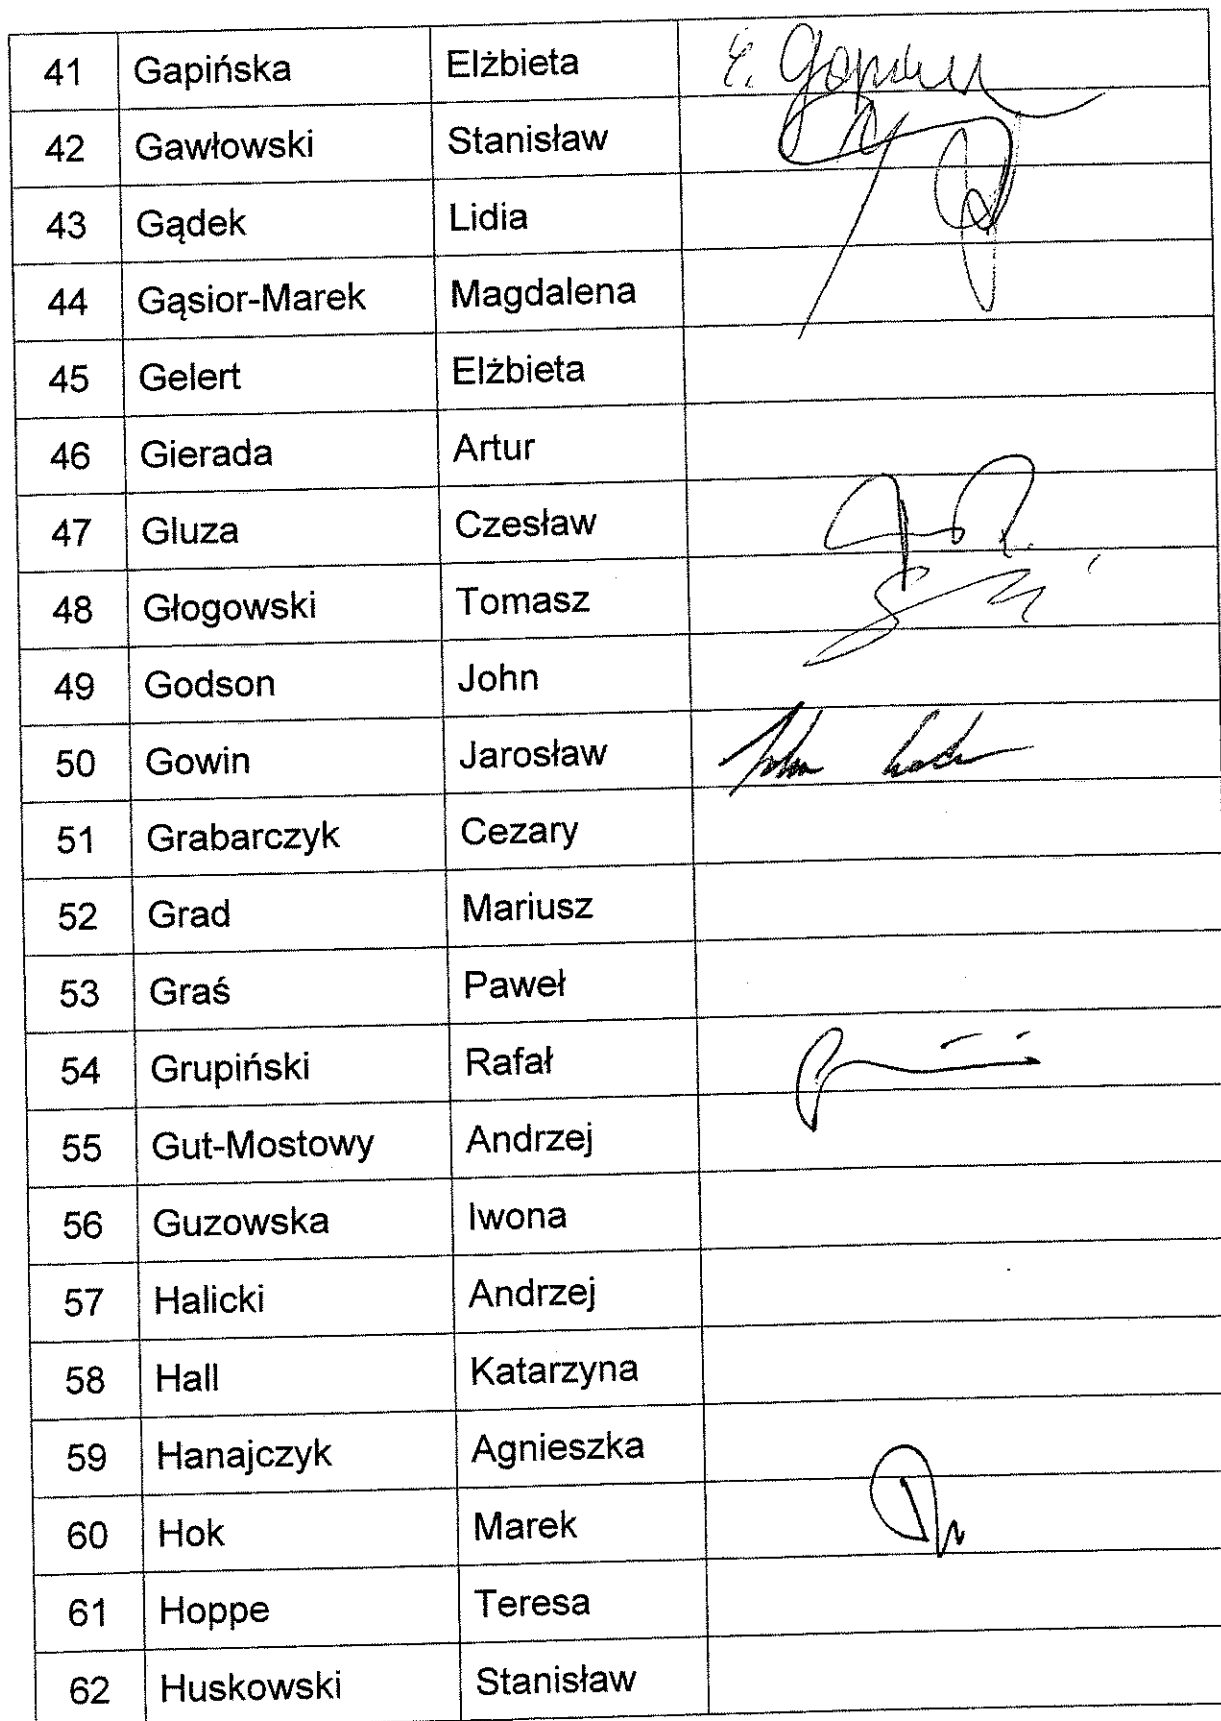 41 Gapińska Elżbieta
42 Gawłowski Stanisław
43 Gądek Lidia
44 Gąsior-Marek Magdalena
45 Gelert Elżbieta
46 Gierada Artur
47 Gluza Czesław
48 Głogowski Tomasz
49 Godson John
50 Gowin Jarosław John
51 Grabarczyk Cezary
52 Grad Mariusz
53 Graś Paweł
54 Grupiński Rafał
55 Gut-Mostowy Andrzej
56 Guzowska Iwona
57 Halicki Andrzej
58 Hall Katarzyna
59 Hanajczyk Agnieszka
60 Hok Marek
61 Hoppe Teresa
62 Huskowski Stanisław